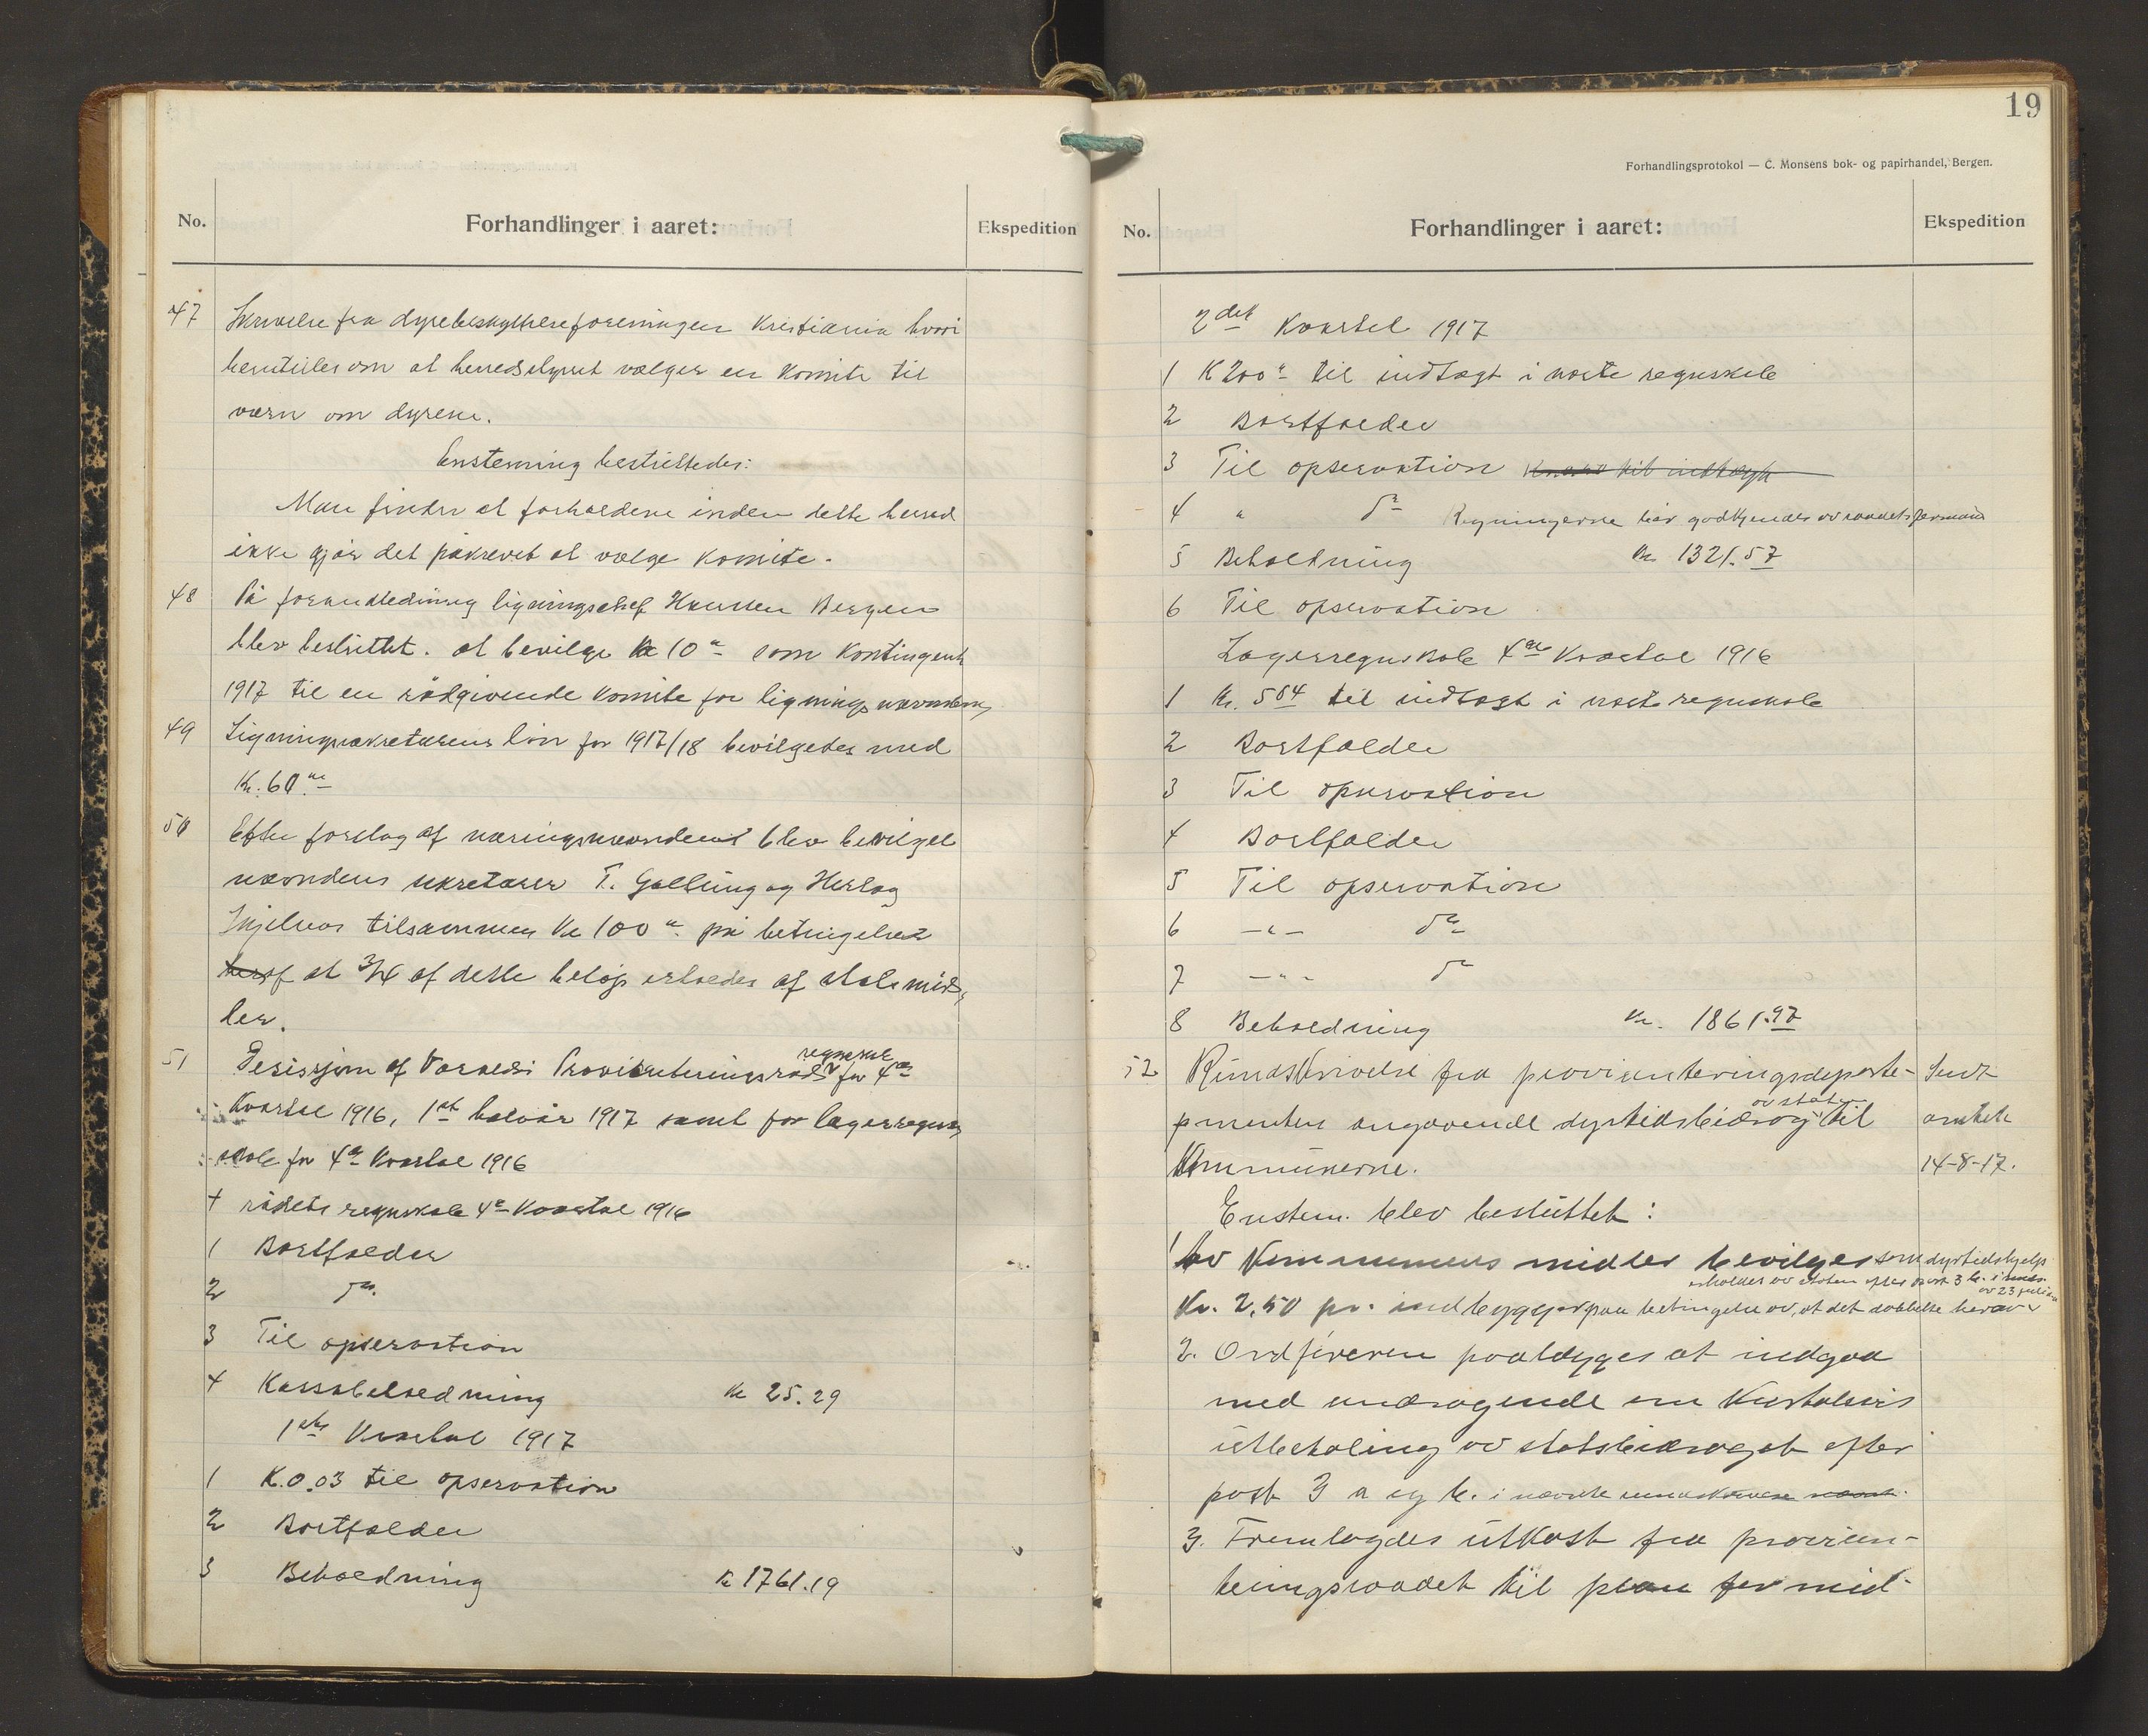 No. Forhandlinger i aaret: Ekspedition
47 Skrivelse fra dyrebeskyttelsesforeningen Kristiania hvori
henstilles om at herredstyret vælger en komite til
værn om dyrene.
Enstemmig besluttedes:
Man finder at forholdene inden dette herred
ikke gjør det påkrevet at vælge komite.
48 På foranledning ligningschef Hanssen Bergen
blev besluttet. at bevilge Kr 10 - som kontingent
1917 til en rådgivende komite for ligningsnævndern
49 Ligningssekretærens løn for 1917/18 bevilgedes med
Kr. 60.-
50 Efter forslag af næringsnævnden blev bevilget
nævndens sekretærer T. Gallung og Herlog
Skjelnes tilsammen Kr 100 - på betingelse
heraf at 3/4 af dette beløp erholdes af statsmid-
ler.
51 Desisjon af Voss Provianteringsråds regnskal for 4de
Kvartal 1916, 1ste halvår 1917 samt for lagerregn-
skab for 4de Kvartal 1916
+ rådets regnskab 4de Kvartal 1916
1 Bortfalder
2 do.
3 Til opservation
4 Kassabeholdning Kr 25.29
1ste Kvartal 1917
1 K. 0.03 til opservation
2 Bortfalder
3 Beholdning Kr 1761.19
19
Forhandlingsprotokol — C. Monsens bok- og papirhandel, Bergen.
No. Forhandlinger i aaret: Ekspedition
2det Kvartal 1917
1 K 200 - til indtægt i næste regnskab
2 Bortfalder
3 Til opservation til indtægt
4 " do Regningerne bør godkjendes av raadets formand
5 Beholdning Kr. 1321.57
6 Til opservation
Lagerregnskab 4de Kvartal 1916
1 Kr. 504 til indtægt i næste regnskab
2 Bortfalder
3 Til opservation
4 Bortfalder
5 Til opservation
6 -"- do
7 -"- do
8 Beholdning Kr. 1861.97
52 Rundskrivelse fra provianteringsdeparte- Sendt
mentet angaaende dyrtidsbidrag av staten til amtet
Kommunerne. 14-8-17.
Enstem. blev besluttet:
1 Av Kommunens midler bevilges som dyrtidshjelp
erholdes av staten efter post 3 b. i av 23 juli
Kr. 2,50 pr. indbygger paa betingelse av, at det dobbelte herav
2. Ordføreren paalægges at indgaa
med andragende om
utbetaling av statsbidraget efter
post 3 a og b. i nævnte rundskrivelse nævnt.
3. Fremlagdes utkast fra provian-
teringsraadet til plan for mid-